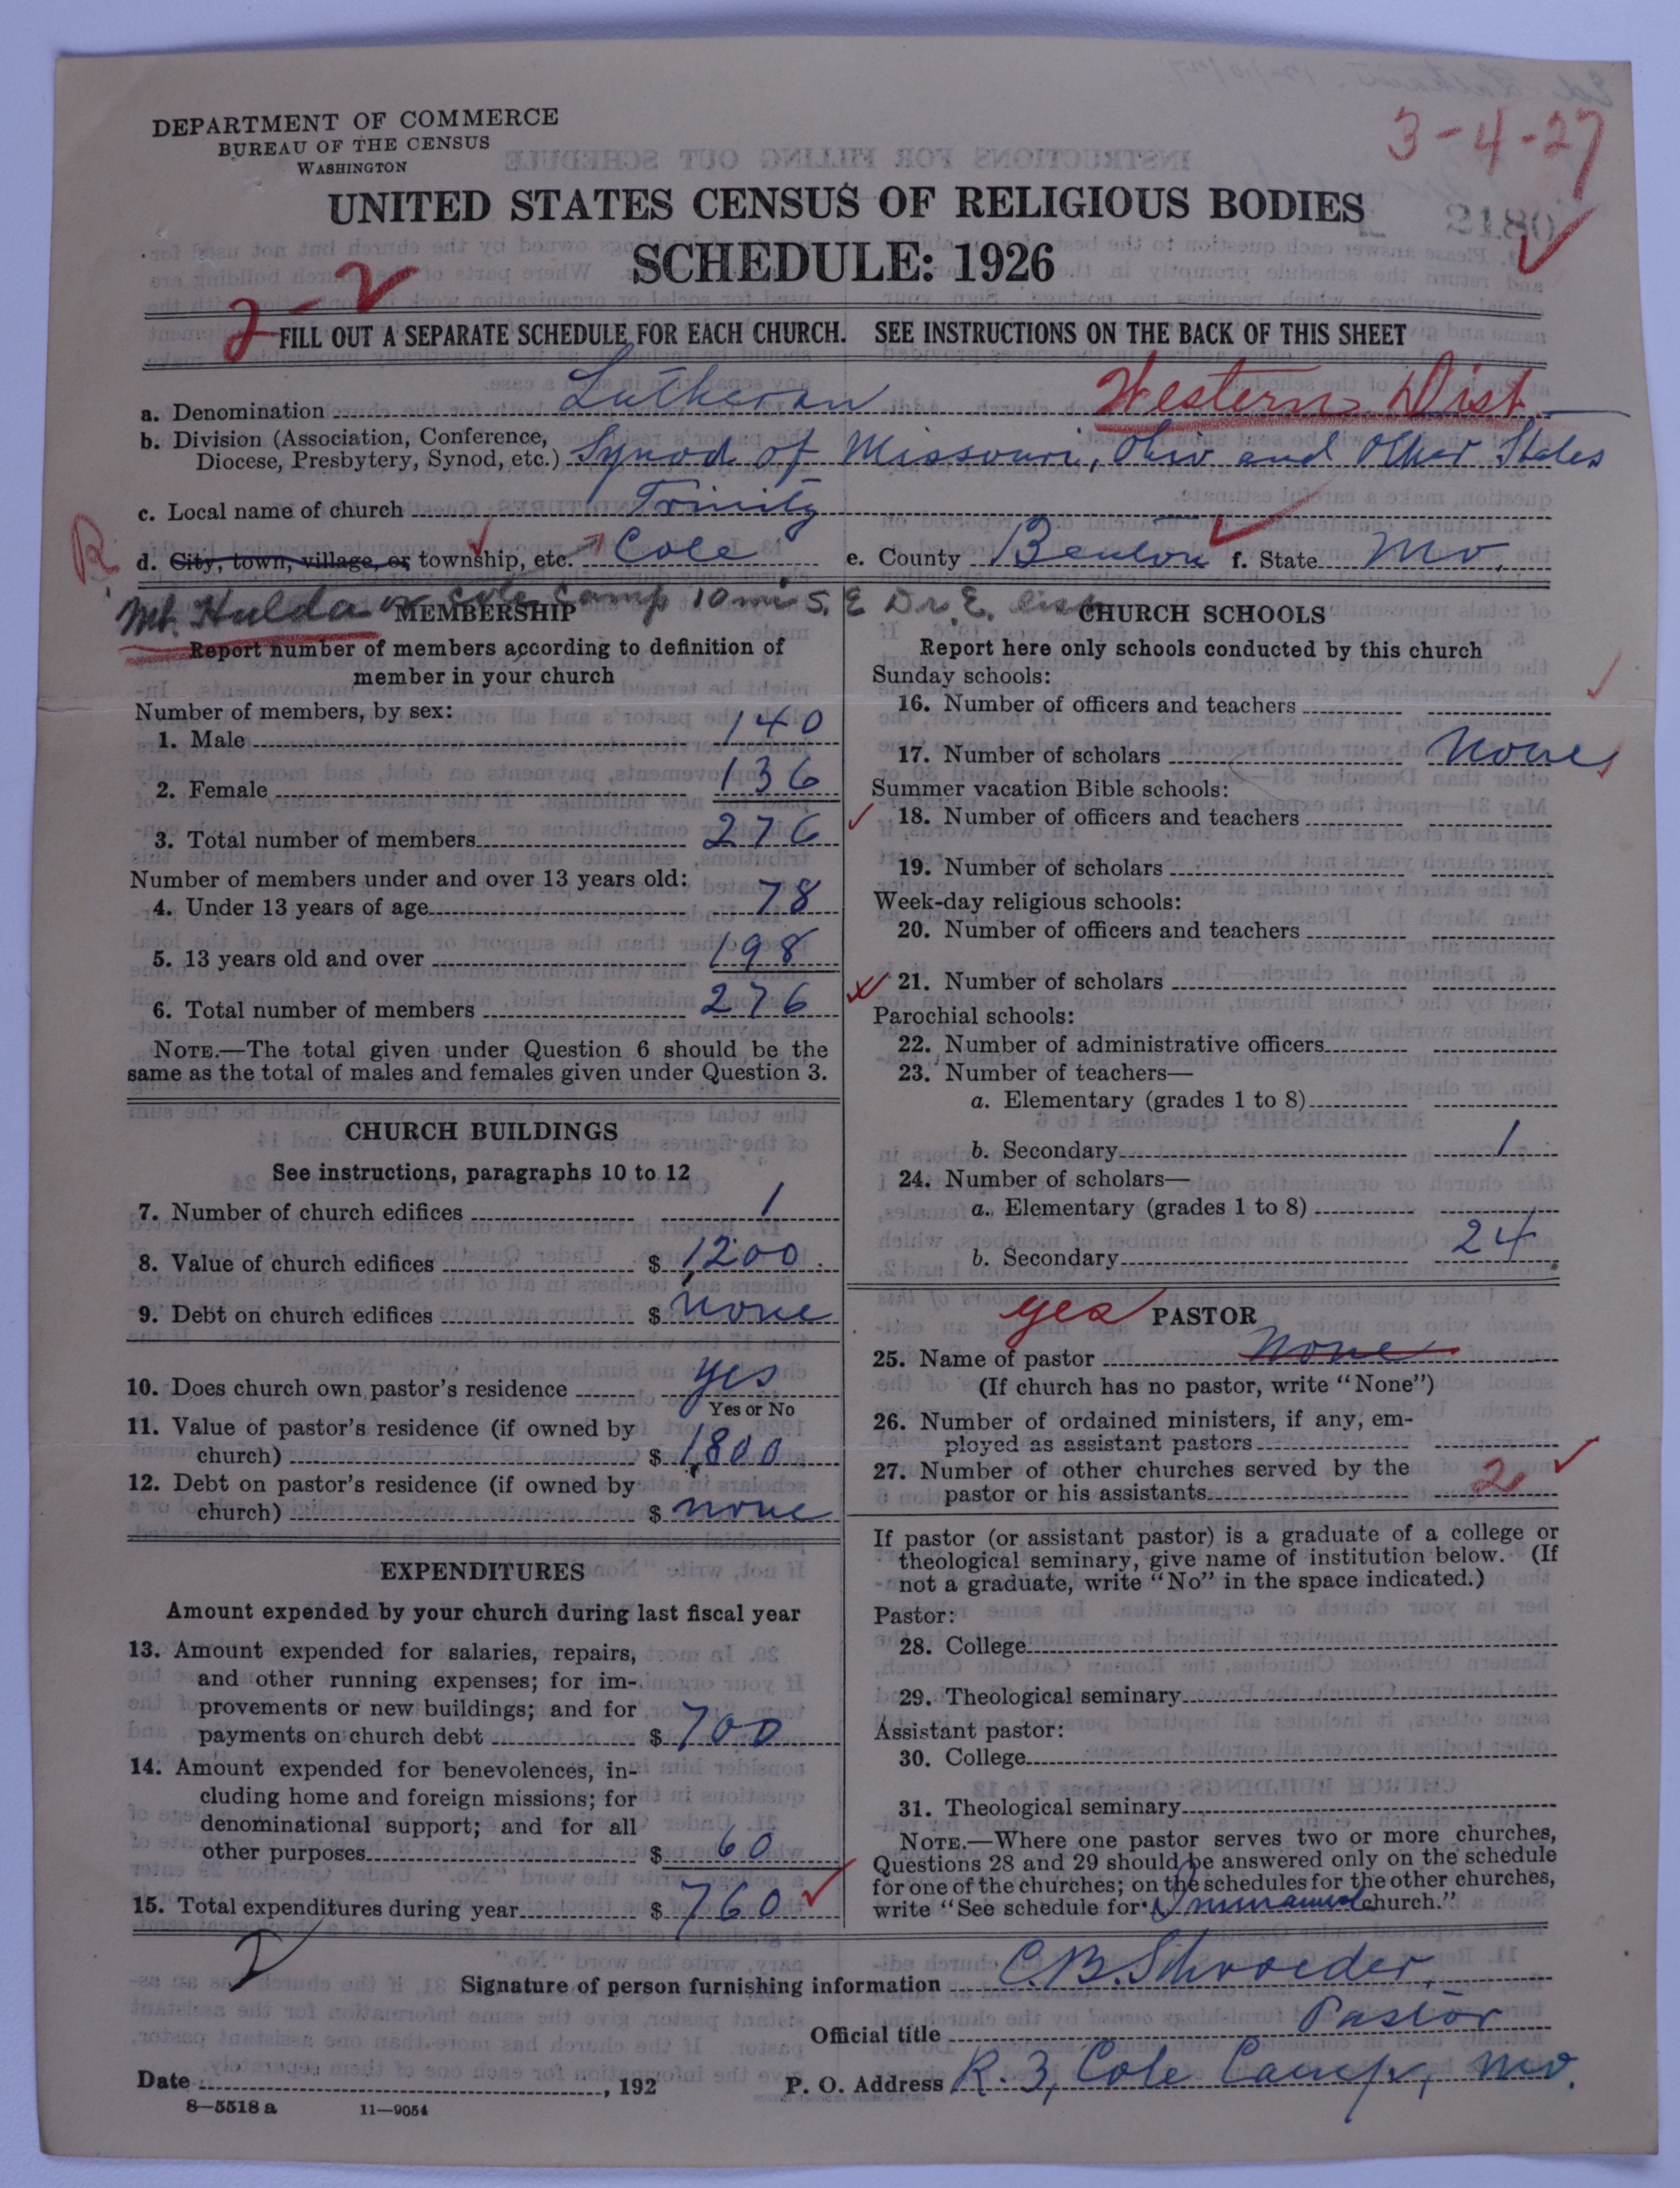 3-4-27
DEPARTMENT OF COMMERCE
BUREAU OF THE CENSUS
WASHINGTON
UNITED STATES CENSUS OF RELIGIOUS BODIES
2180
SCHEDULE: 1926
2-2
FILL OUT A SEPARATE SCHEDULE FOR EACH CHURCH. SEE INSTRUCTIONS ON THE BACK OF THIS SHEET
a. Denomination Lutheran Western Dist.
b. Division (Association, Conference,
Diocese, Presbytery, Synod, etc.) Synod of Missouri, Ohio and Other States
c. Local name of church Trinity
R d. City, town, village, or township, etc. Cole e. County Benton f. State Mo.
Mt. Hulda or Cole Camp 10 mi S. E Dr. E. list
MEMBERSHIP
Report number of members according to definition of
member in your church
Number of members, by sex:
1. Male 140
2. Female 136
3. Total number of members 276
Number of members under and over 13 years old:
4. Under 13 years of age 78
5. 13 years old and over 198
6. Total number of members 276
NOTE.—The total given under Question 6 should be the
same as the total of males and females given under Question 3.
CHURCH BUILDINGS
See instructions, paragraphs 10 to 12
7. Number of church edifices 1
8. Value of church edifices $ 1200
9. Debt on church edifices $ none
10. Does church own pastor's residence yes
Yes or No
11. Value of pastor's residence (if owned by
church) $ 1800
12. Debt on pastor's residence (if owned by
church) $ none
EXPENDITURES
Amount expended by your church during last fiscal year
13. Amount expended for salaries, repairs,
and other running expenses; for im-
provements or new buildings; and for
payments on church debt $ 700
14. Amount expended for benevolences, in-
cluding home and foreign missions; for
denominational support; and for all
other purposes $ 60
15. Total expenditures during year $ 760
CHURCH SCHOOLS
Report here only schools conducted by this church
Sunday schools:
16. Number of officers and teachers
17. Number of scholars None
Summer vacation Bible schools:
18. Number of officers and teachers
19. Number of scholars
Week-day religious schools:
20. Number of officers and teachers
21. Number of scholars
Parochial schools:
22. Number of administrative officers
23. Number of teachers—
a. Elementary (grades 1 to 8)
b. Secondary 1
24. Number of scholars—
a. Elementary (grades 1 to 8)
b. Secondary 24
yes PASTOR
25. Name of pastor None
(If church has no pastor, write "None")
26. Number of ordained ministers, if any, em-
ployed as assistant pastors
27. Number of other churches served by the
pastor or his assistants 2
If pastor (or assistant pastor) is a graduate of a college or
theological seminary, give name of institution below. (If
not a graduate, write "No" in the space indicated.)
Pastor:
28. College
29. Theological seminary
Assistant pastor:
30. College
31. Theological seminary
NOTE.—Where one pastor serves two or more churches,
Questions 28 and 29 should be answered only on the schedule
for one of the churches; on the schedules for the other churches,
write "See schedule for Immanuel church."
2
Signature of person furnishing information C.B. Schroeder,
Official title Pastor
Date , 192 P. O. Address R. 3, Cole Camp, Mo.
8—5518 a 11—9054